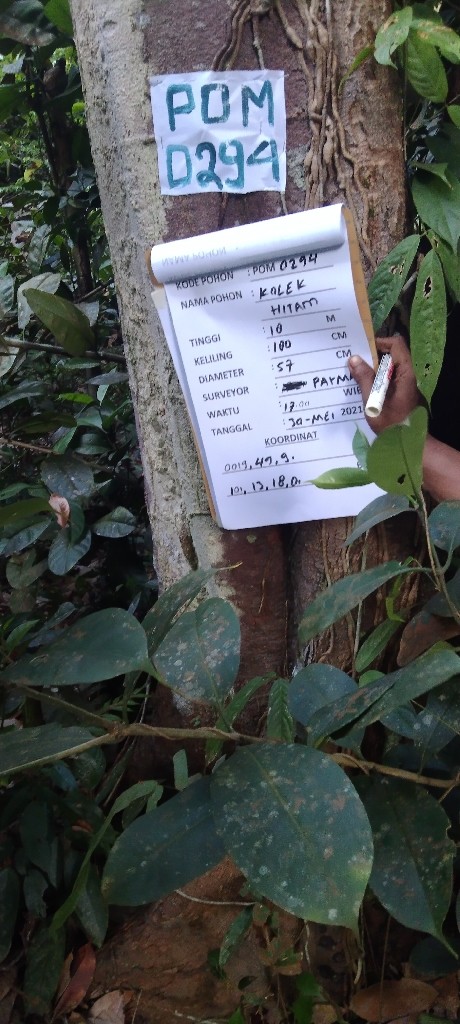 POM
D294
KODE POHON : POM D294
NAMA POHON : KOLEK
HITAM
TINGGI : 10 M
KELILING : 180 CM
DIAMETER : 57 CM
SURVEYOR : PAYMA
WAKTU : 17.00 WIB
TANGGAL : 30-MEI 2021
KOORDINAT
0019, 49, 9.
101, 13, 18, 0.